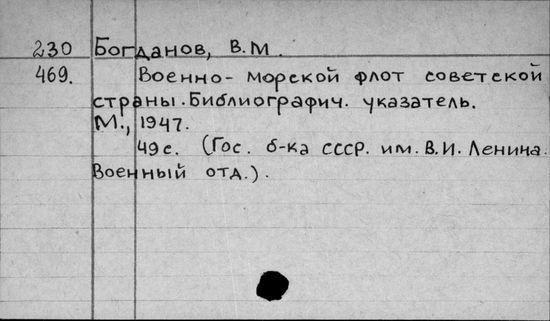 230 Богданов, В.М.
469. Военно-морской флот советской
страны. Библиографич. указатель.
М., 1947.
49с. (Гос. б-ка СССР. им. В.И. Ленина.
Военный отд.).